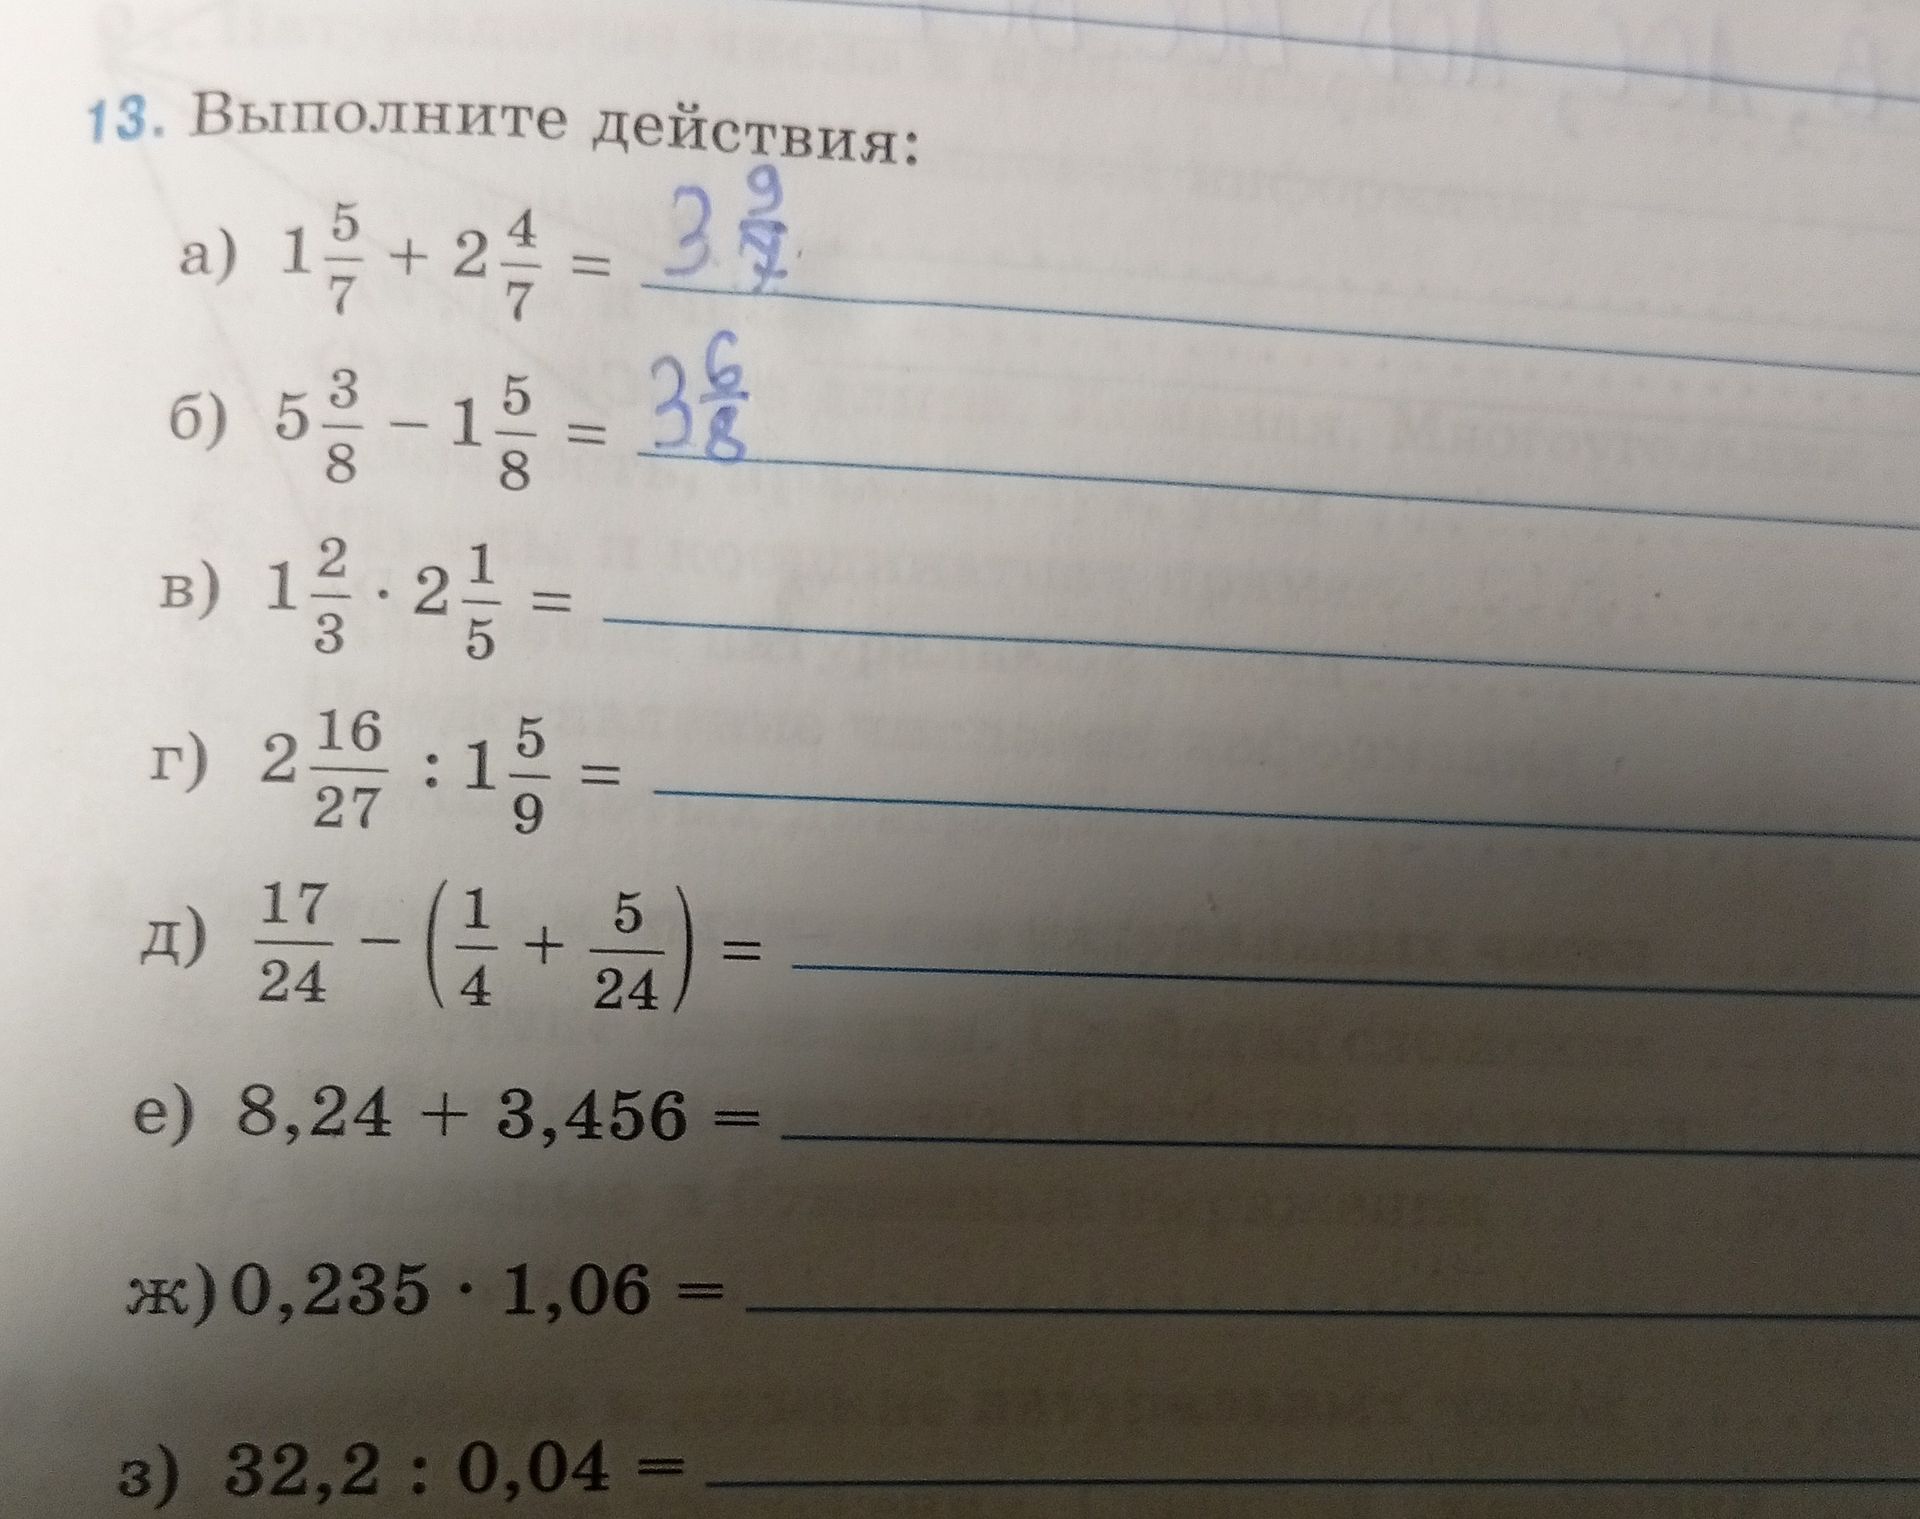 13. Выполните действия:
а) 1 5/7 + 2 4/7 = 3 9/7
б) 5 3/8 − 1 5/8 = 3 6/8
в) 1 2/3 · 2 1/5 =
г) 2 16/27 : 1 5/9 =
д) 17/24 − (1/4 + 5/24) =
е) 8,24 + 3,456 =
ж) 0,235 · 1,06 =
з) 32,2 : 0,04 =